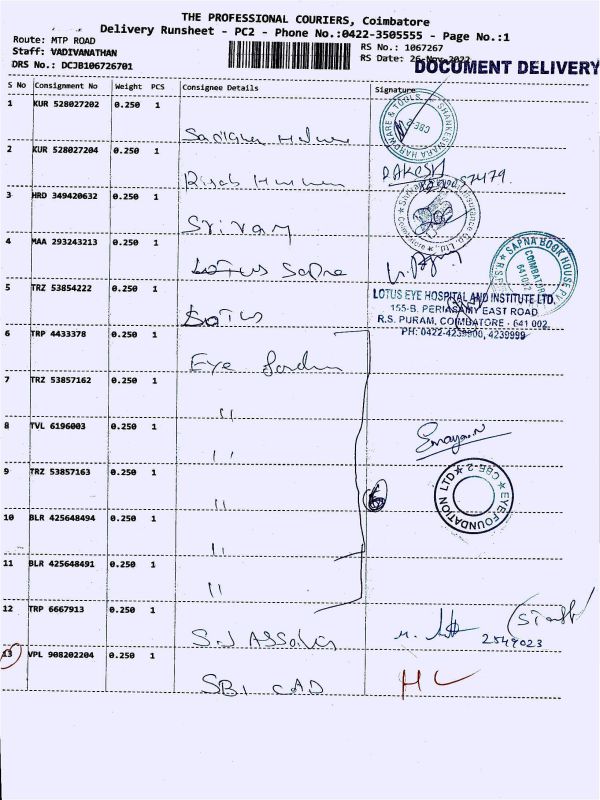 THE PROFESSIONAL COURIERS, Coimbatore
Delivery Runsheet - PC2 - Phone No.:0422-3505555 - Page No.:1
Route: MTP ROAD
Staff: VADIVANATHAN
DRS No.: DCJB106726701
RS No.: 1067267
RS Date: 26-Nov-2022
DOCUMENT DELIVERY
S No Consignment No Weight PCS Consignee Details Signature
1 KUR 528027202 0.250 1
SHANKESWARA HARDWARE & TOOLS CBE-2
2 KUR 528027204 0.250 1
RAKESH
3 HRD 349420632 0.250 1
Sriram
4 MAA 293243213 0.250 1
Lotus Sapna
SAPNA BOOK HOUSE COIMBATORE 641002
5 TRZ 53854222 0.250 1
Lotus
LOTUS EYE HOSPITAL AND INSTITUTE LTD.
155-B, PERIASAMY EAST ROAD
R.S. PURAM, COIMBATORE - 641 002.
PH: 0422-4239900, 4239999
6 TRP 4433378 0.250 1
Eye
7 TRZ 53857162 0.250 1
"
8 TVL 6196003 0.250 1
"
9 TRZ 53857163 0.250 1
"
6
EYE FOUNDATION LTD CBE-2
10 BLR 425648494 0.250 1
"
11 BLR 425648491 0.250 1
"
12 TRP 6667913 0.250 1
2549023
13 VPL 908202204 0.250 1
SBI CAD